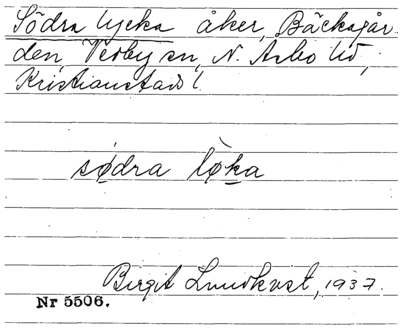 Södra lycka åker, Bäckagår
den, Verby sn, N. Åsbo hd,
Kristianstads l.
sødra løka
Birgit Lundkvist, 1937.
Nr 5506.